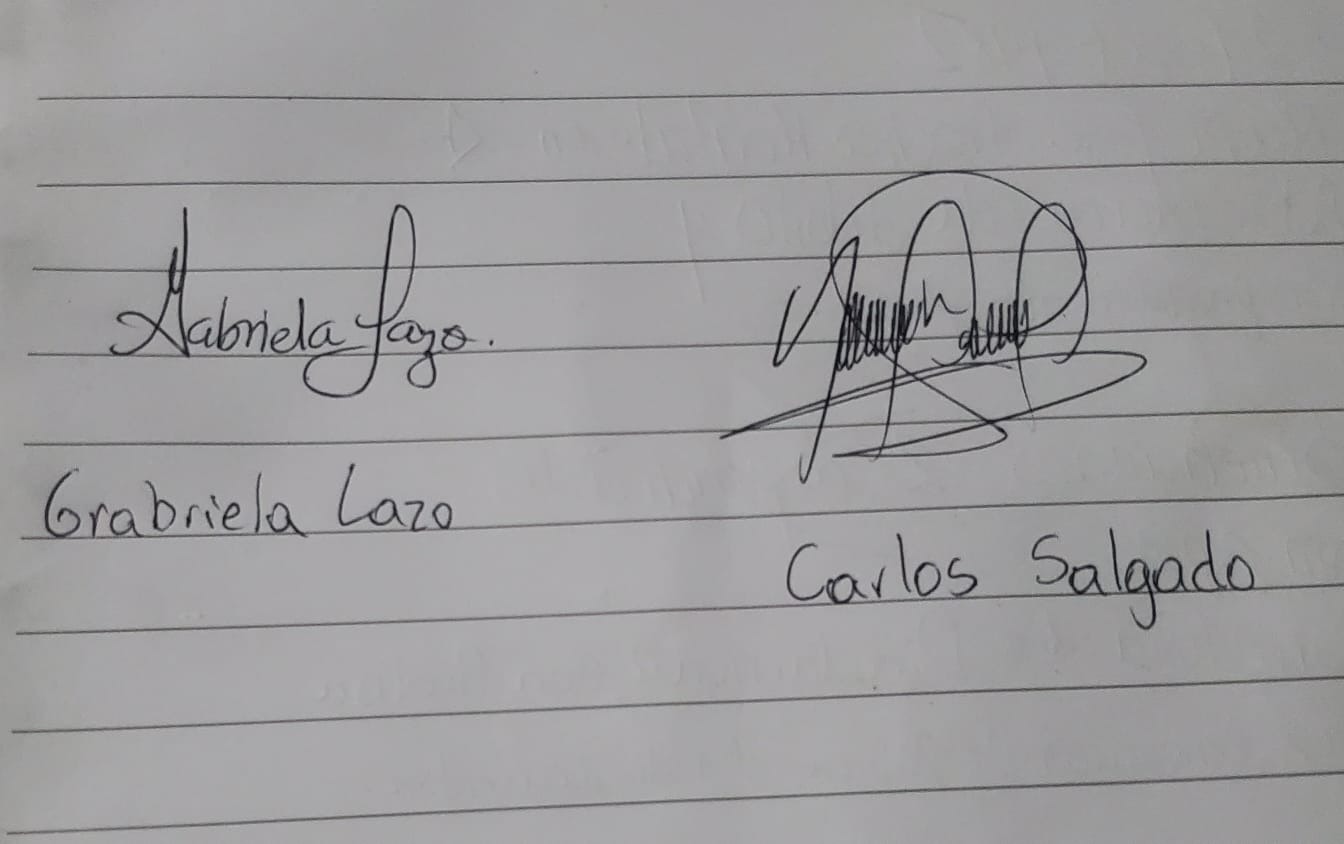 Gabriela Lazo.
Grabriela Lazo
Carlos Salgado